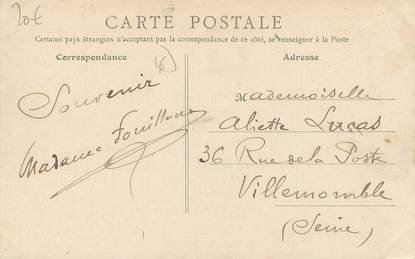 20€
CARTE POSTALE
Certains pays étrangers n'acceptant pas la correspondance de ce côté, se renseigner à la Poste
Correspondance
Adresse
Souvenir
Madame
Mademoiselle
Aliette Lucas
36 Rue de la Poste
Villemomble
(Seine)